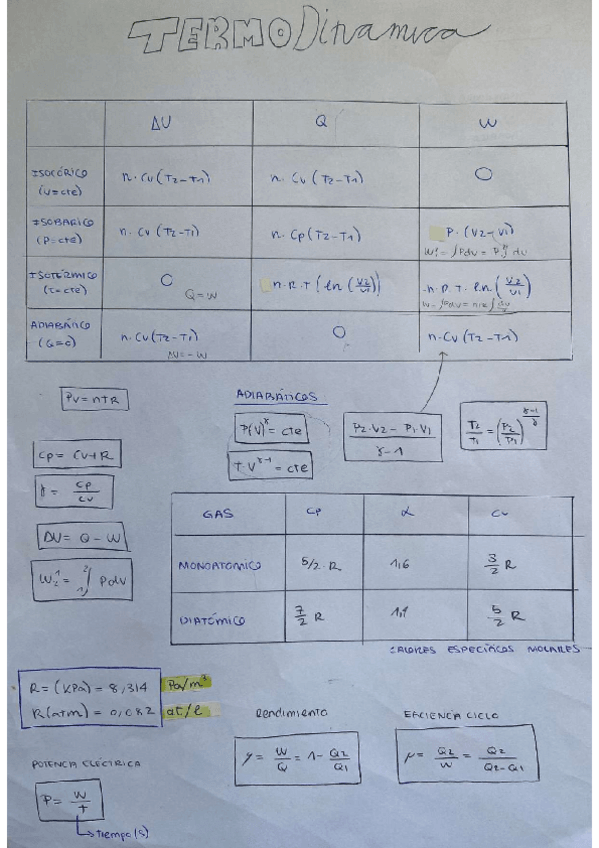 TERMODinamica
ΔU Q W
ISOCÓRICO (V=cte) n. Cv (T2-T1) n. Cv (T2-T1) O
ISOBARICO (P=cte) n. Cv (T2-T1) n. Cp (T2-T1) P. (V2-V1)
ISOTÉRMICO (T=cte) O Q=W n.R.T (ln (V2/V1)) n.R.T. ln (V2/V1)
ADIABÁTICO (Q=0) n.Cv(T2-T1) ΔU=-W O n.Cv(T2-T1)
PV=nTR
ADIABÁTICOS
P(V)^γ = cte
T.V^γ-1 = cte
P2.V2 - P1.V1 / γ-1
T2/T1 = (P2/P1)^γ-1/γ
Cp = Cv+R
γ = Cp/Cv
ΔU= Q-W
W = ∫ Pdv
GAS Cp α Cv
MONOATOMICO 5/2.R 1,6 3/2 R
DIATÓMICO 7/2 R 1,4 5/2 R
CALORES ESPECÍFICOS MOLARES
R=(KPa) = 8,314 Pa/m³
R(atm) = 0,082 at/l
Rendimiento
η = W/Q = 1- Q2/Q1
EFICIENCIA CICLO
μ= Q2/W = Q2/Q2-Q1
POTENCIA ELÉCTRICA
P= W/t
Tiempo(s)